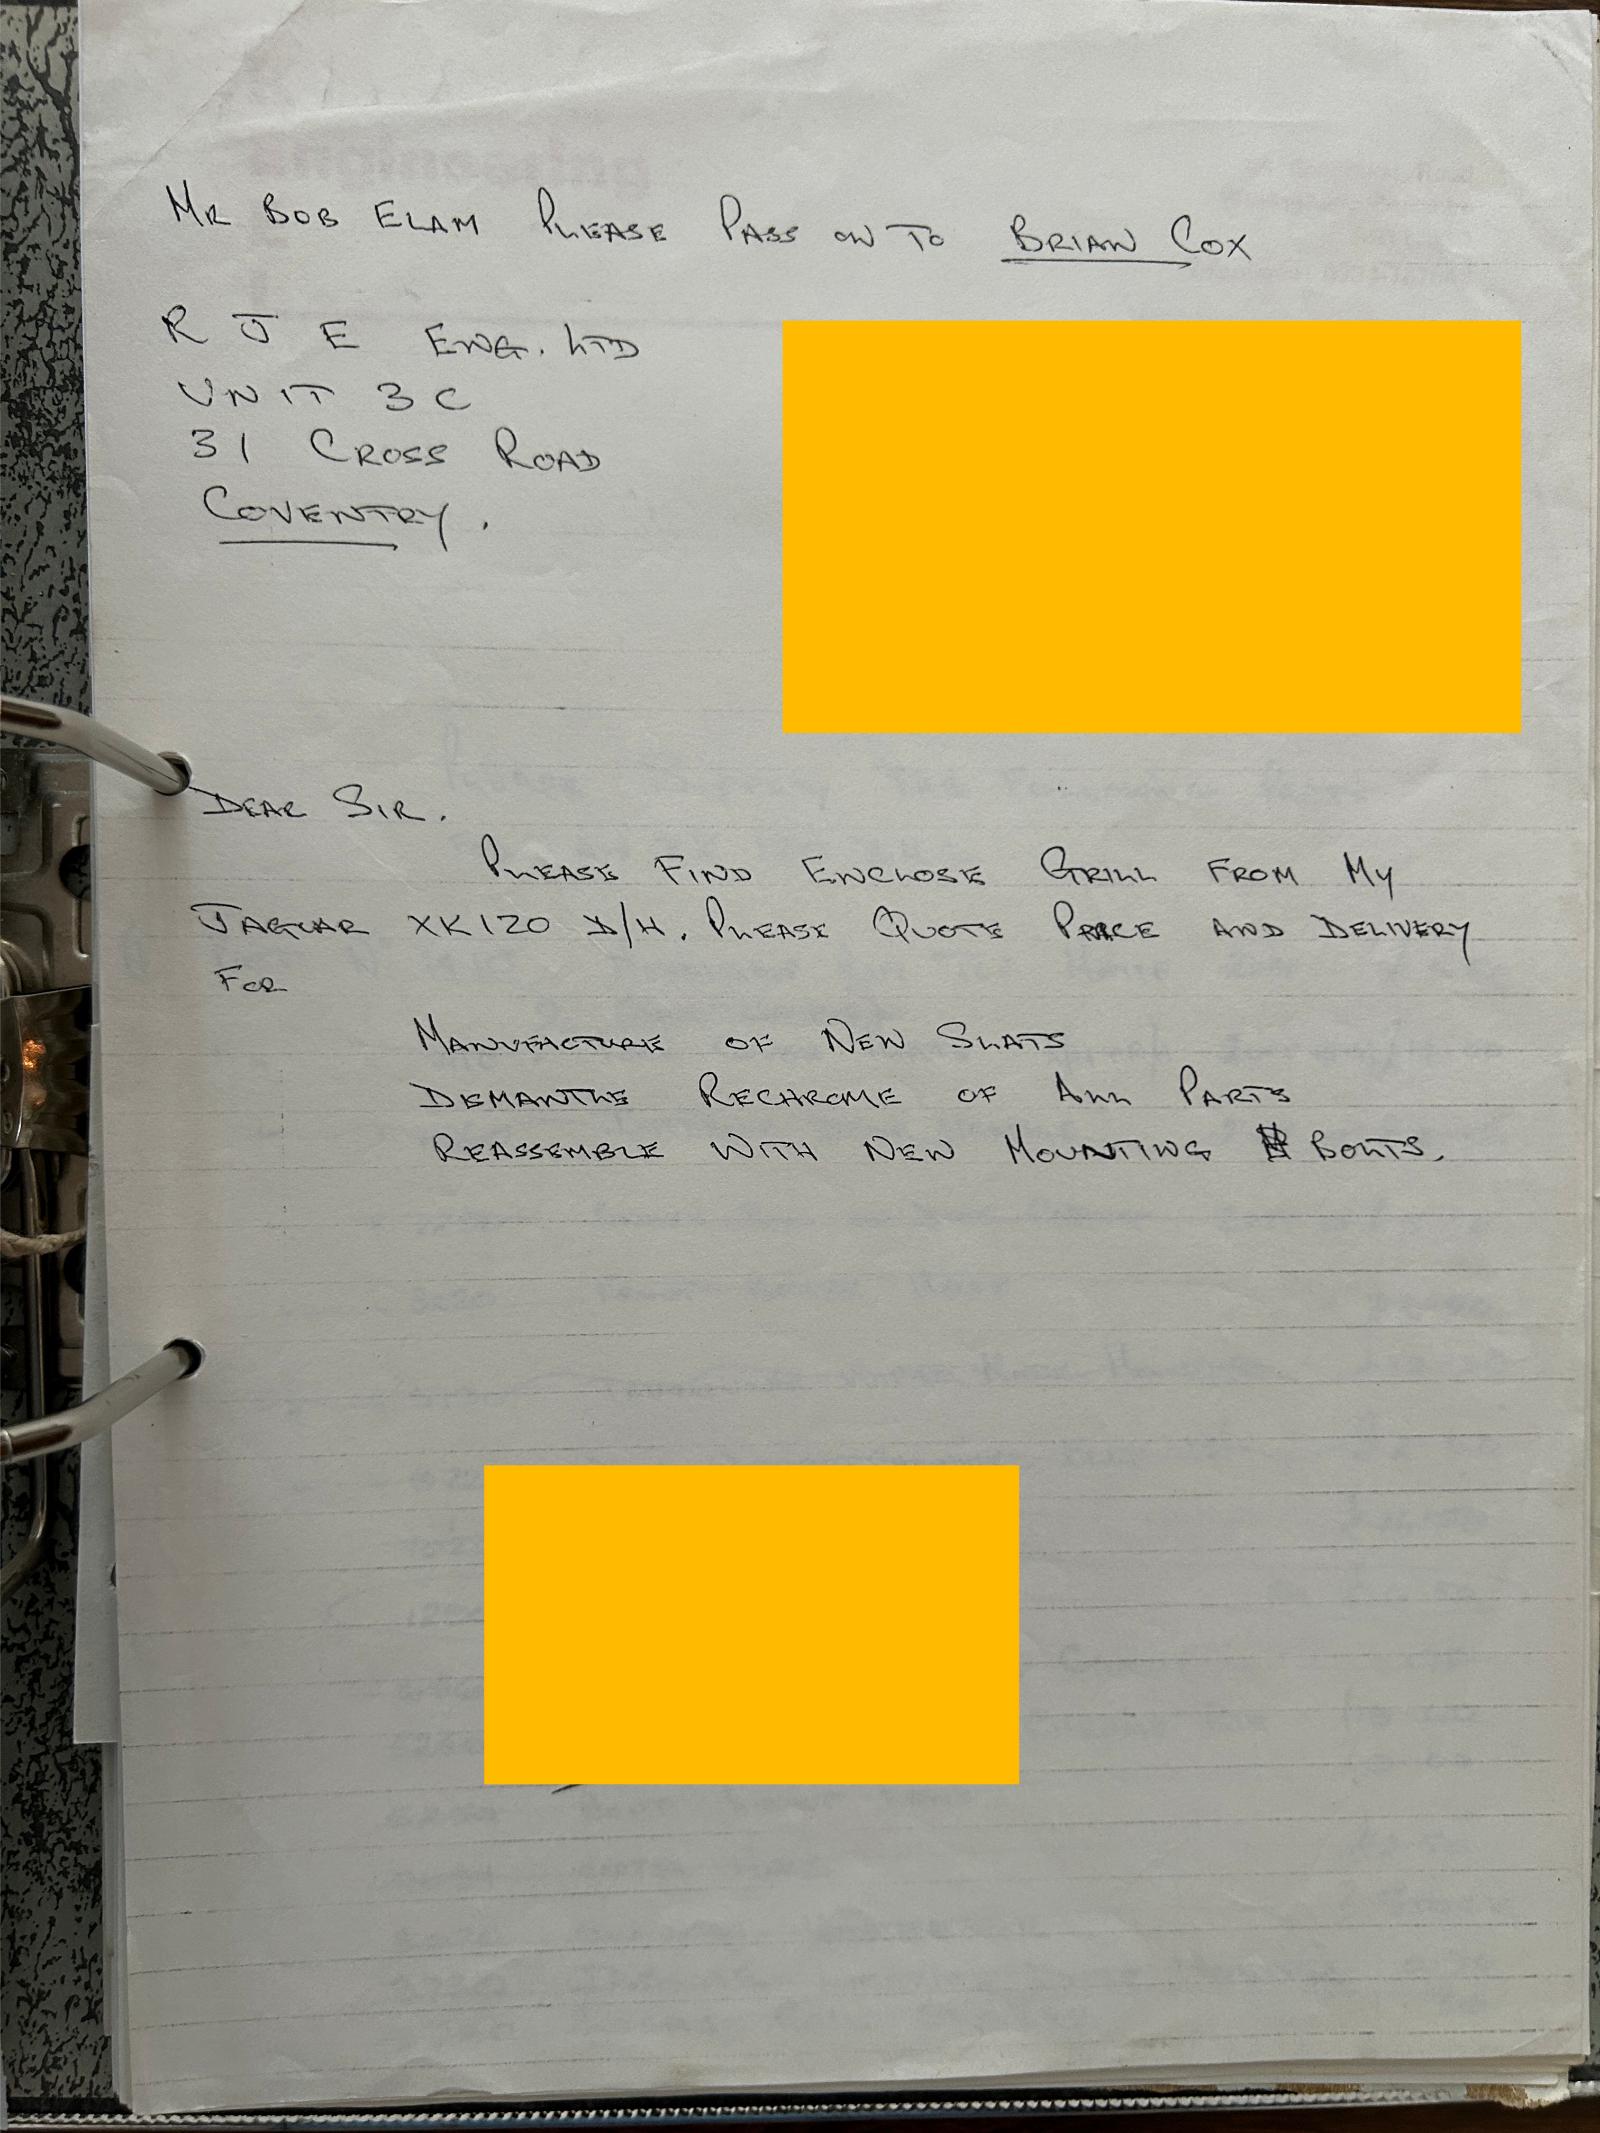 MR BOB ELAM PLEASE PASS ON TO BRIAN COX
R J E ENG. LTD
UNIT 3C
31 CROSS ROAD
COVENTRY.
DEAR SIR.
PLEASE FIND ENCLOSE GRILL FROM MY
JAGUAR XK120 D/H. PLEASE QUOTE PRICE AND DELIVERY
FOR
MANUFACTURE OF NEW SLATS
DISMANTLE RECHROME OF ALL PARTS
REASSEMBLE WITH NEW MOUNTING BOLTS.